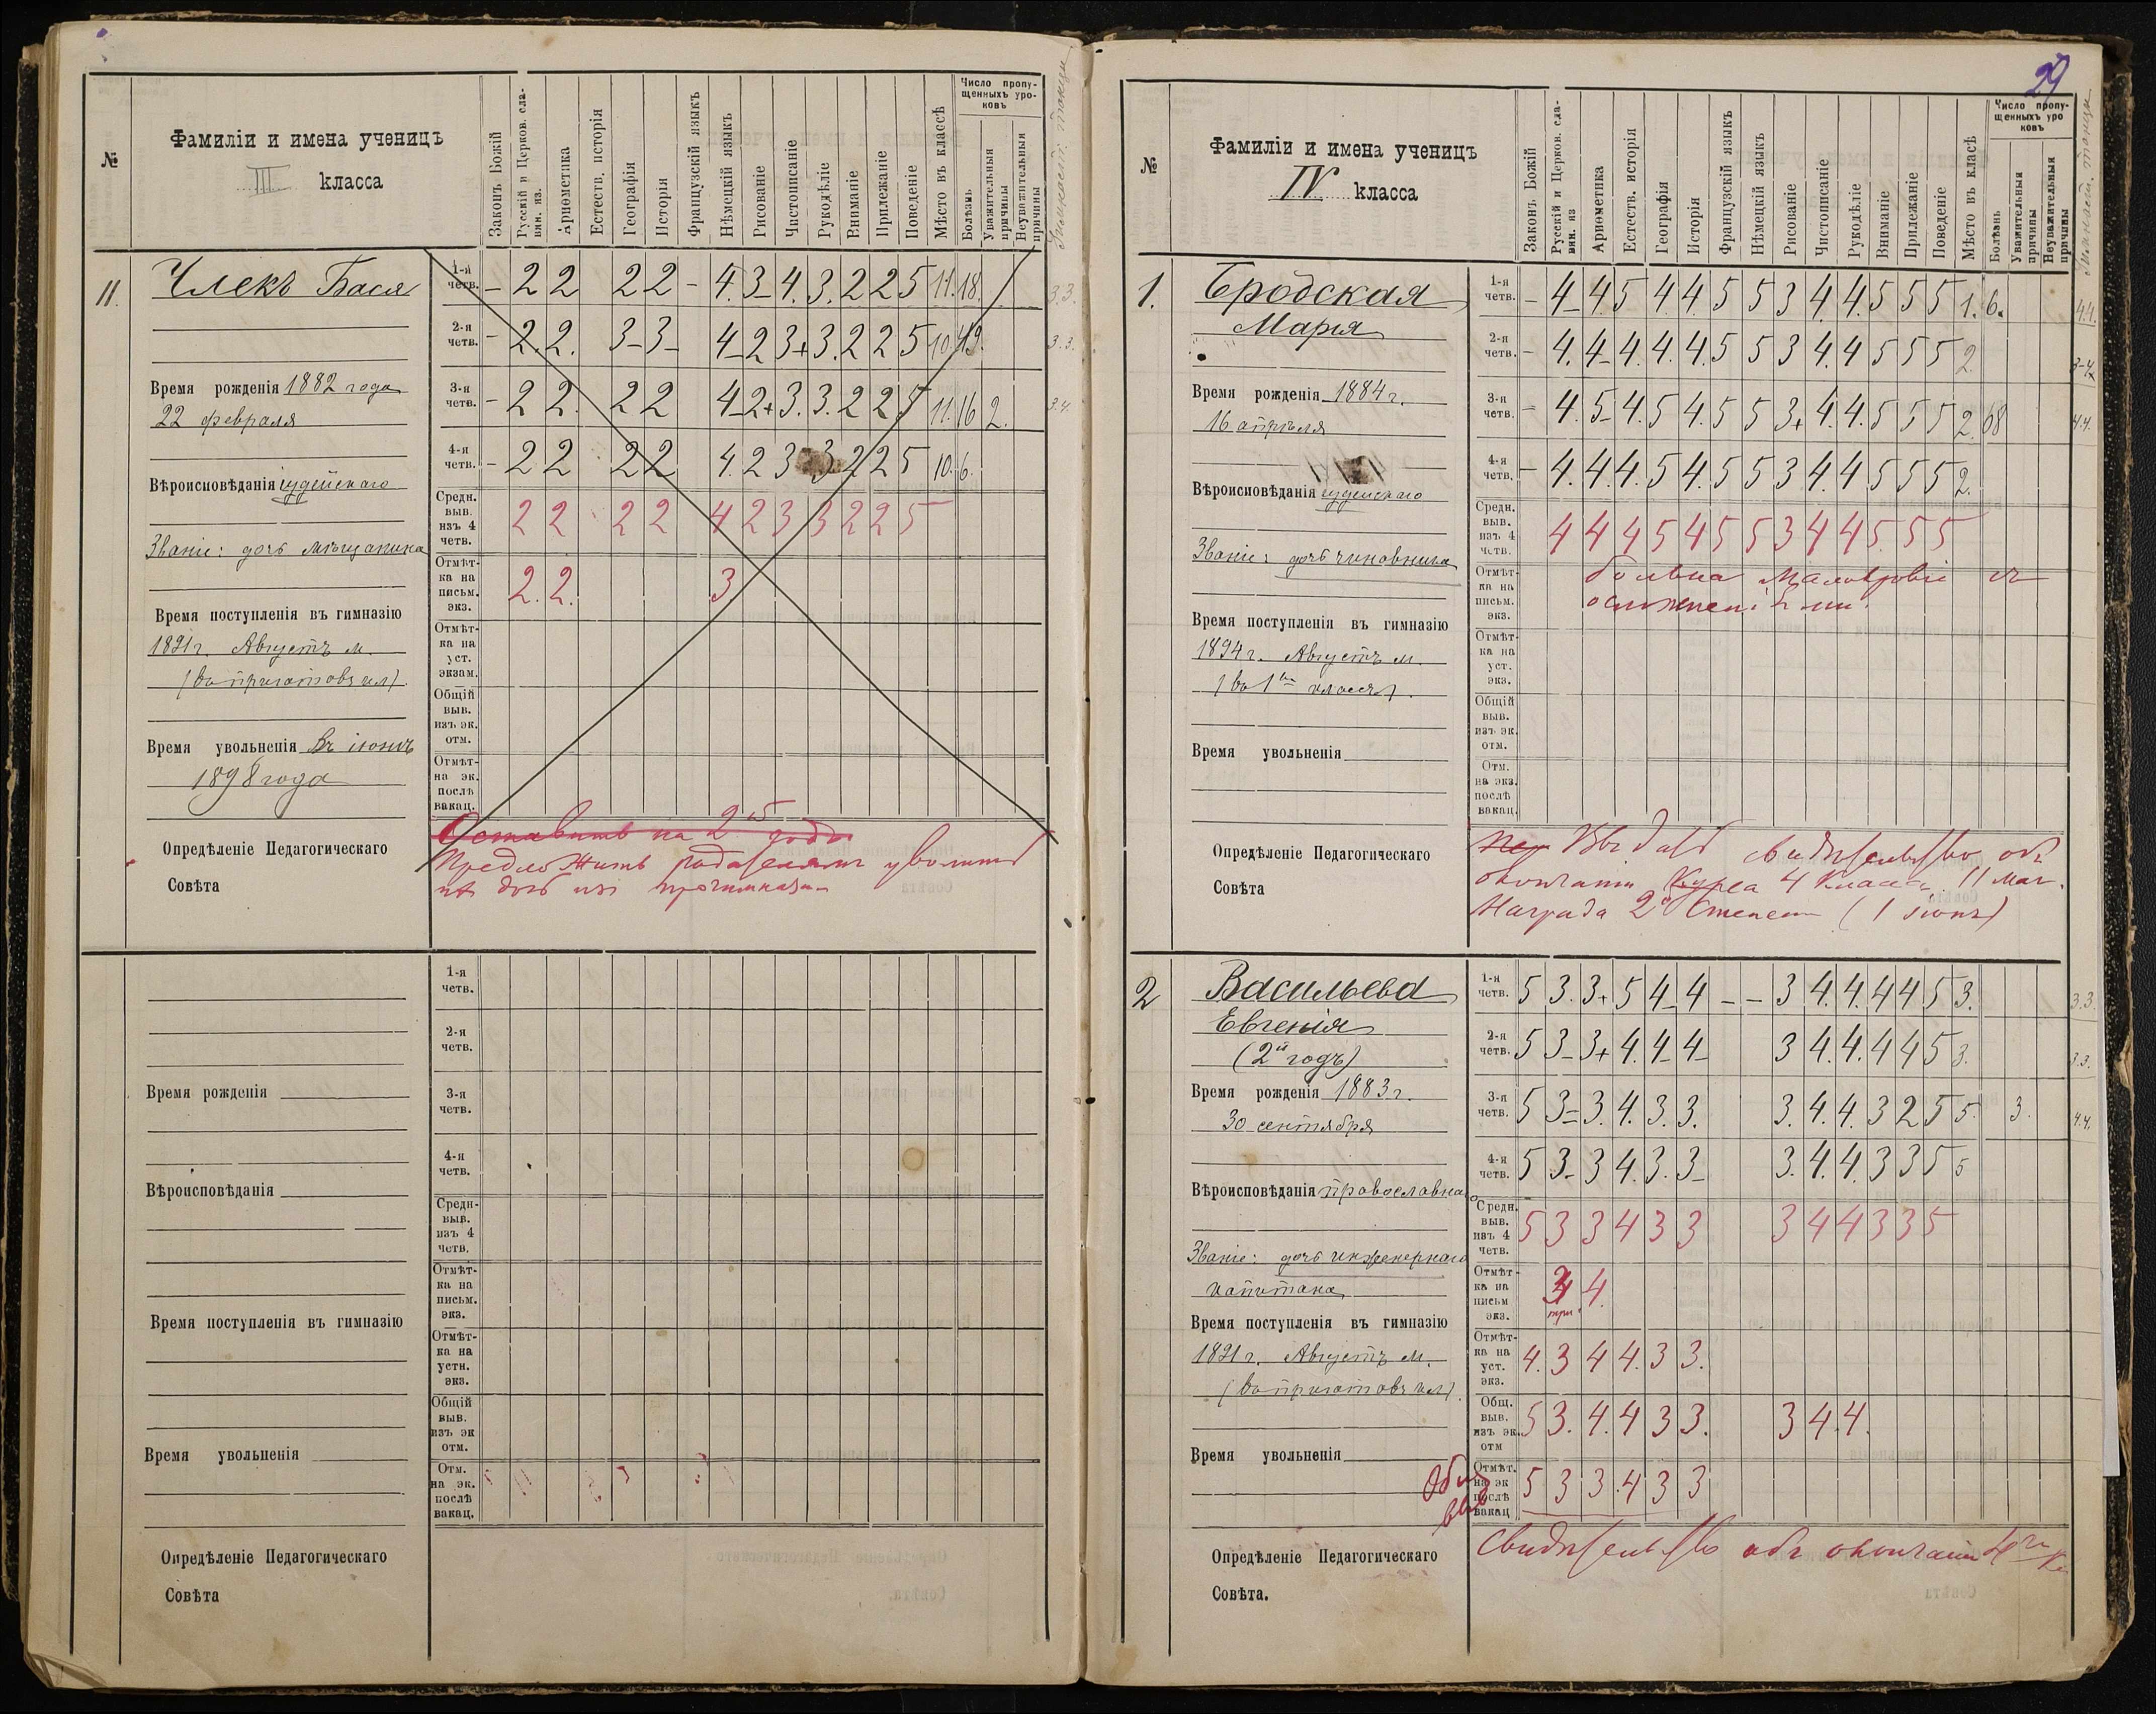 №
Фамиліи и имена ученицъ
III класса
Законъ Божій
Русскій и Церков. сла-
вян. яз.
Ариѳметика
Естеств. исторія
Географія
Исторія
Французскій языкъ
Нѣмецкій языкъ
Рисованіе
Чистописаніе
Рукодѣліе
Вниманіе
Прилежаніе
Поведеніе
Мѣсто въ классѣ
Число пропу-
щенныхъ уро-
ковъ
Болѣзнь
Уважительныя
причины
Неуважительныя
причины
11.
Члекъ Бася
Время рожденія 1882 года
22 февраля
Вѣроисповѣданія іудейскаго
Званіе: дочь мѣщанина
Время поступленія въ гимназію
1891 г. Августъ м.
(въ приготов. кл).
Время увольненія Въ іюнѣ
1898 года
1-я четв. – 2 2 2 2 – 4. 3– 4. 3. 2 2 5 11. 18.
3.3.
2-я четв. – 2. 2. 3– 3– 4– 2 3+ 3. 2 2 5 10. 49.
3.3.
3-я четв. – 2 2. 2 2 4– 2+ 3. 3. 2 2 5 11. 16 2.
3.4.
4-я четв. – 2 2 2 2 4. 2 3 3 2 2 5 10. 6.
Средн. выв. изъ 4 четв. 2 2 2 2 4 2 3 3 2 2 5
Отмѣт- ка на письм. экз. 2. 2. 3
Отмѣт- ка на уст. экзам.
Общій выв. изъ эк. отм.
Отмѣт- на эк. послѣ вакац.
Опредѣленіе Педагогическаго
Совѣта
Оставить на 2й годъ
Предложить родителямъ уволить
ихъ дочь изъ прогимназіи
1-я четв.
2-я четв.
3-я четв.
4-я четв.
Время рожденія
Вѣроисповѣданія
Время поступленія въ гимназію
Время увольненія
Средн- выв. изъ 4 четв.
Отмѣт- ка на письм. экз.
Отмѣт- ка на устн. экз.
Общій выв. изъ эк отм.
Отм. на эк. послѣ вакац.
Опредѣленіе Педагогическаго
Совѣта
29
№
Фамиліи и имена ученицъ
IV класса
Законъ Божій
Русскій и Церков. сла-
вян. яз
Ариѳметика
Естеств. исторія
Географія
Исторія
Французскій языкъ
Нѣмецкій языкъ
Рисованіе
Чистописаніе
Рукодѣліе
Вниманіе
Прилежаніе
Поведеніе
Мѣсто въ класѣ
Число пропу-
щенныхъ уро
ковъ
Болѣзнь
Уважительныя
причины
Неуважительны
причины
1.
Бродская
Марія
Время рожденія 1884 г.
16 апрѣля
Вѣроисповѣданія іудейскаго
Званіе: дочь чиновника
Время поступленія въ гимназію
1894 г. Августъ м.
(въ 1й классъ).
Время увольненія
1-я четв. – 4– 4. 5 4. 4. 5 5 3 4. 4. 5 5 5 1. 6.
4.4.
2-я четв. – 4. 4– 4. 4. 4. 5 5 3 4. 4 5 5 5 2.
3-4
3-я четв. – 4. 5– 4. 5 4. 5 5 3+ 4. 4. 5 5 5 2. 68
4.4.
4-я четв. – 4. 4. 4. 5 4. 5 5 3 4. 4 5 5 5 2.
Средн. выв. изъ 4 четв. 4 4 4 5 4 5 5 3 4 4 5 5 5
Отмѣт- ка на письм. экз. больна малокровіе съ
осложненіями.
Отмѣт- ка на уст. экз.
Общій выв. изъ эк. отм.
Отм. на экз. послѣ вакац.
Опредѣленіе Педагогическаго
Совѣта
Выдать свидѣтельство объ
окончаніи курса 4 класса. 11 мая.
Награда 2й степени (1 іюня)
2
Васильева
Евгенія
(2й годъ)
Время рожденія 1883 г.
30 сентября
Вѣроисповѣданія православнаго
Званіе: дочь инженернаго
капитана
Время поступленія въ гимназію
1891 г. Августъ м.
(въ приготов. кл).
Время увольненія
1-я четв. 5 3. 3+ 5 4– 4 – – 3 4. 4. 4 4 5 3.
3.3.
2-я четв. 5 3– 3+ 4. 4– 4– 3 4. 4. 4 4 5 3.
3.3.
3-я четв. 5 3– 3. 4. 3. 3. 3. 4. 4. 3 2 5 5. 3.
4.4.
4-я четв. 5 3– 3 4. 3. 3– 3. 4. 4. 3 3 5 5
Средн. выв. изъ 4 четв. 5 3 3 4 3 3 3 4 4 3 3 5
Отмѣт- ка на письм экз. 3 4.
три.
Отмѣт- ка на уст. экз. 4. 3 4 4. 3 3.
Общ. выв. изъ эк. отм 5 3. 4. 4 3 3. 3 4 4.
Отмѣт. на эк послѣ вакац 5 3 3 4 3 3
Общ
выв
Опредѣленіе Педагогическаго
Совѣта.
Свидѣтельство объ окончаніи 4го кл